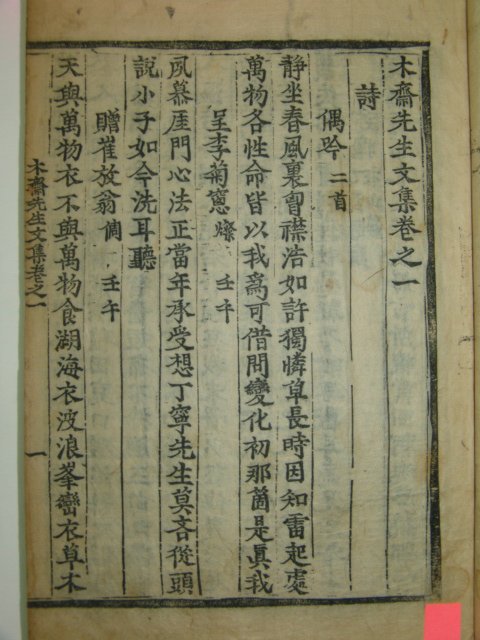 木齋先生文集卷之一
詩
偶吟 二首
靜坐春風裏曾襟浩如許獨憐草長時因知雷起處
萬物各性命皆以我爲可借問變化初那箇是眞我
呈李菊窻 燦 壬午
夙慕厓門心法正當年承受想丁寧先生莫吝從頭
說小子如今洗耳聽
贈崔放翁 侗 壬午
天與萬物衣不與萬物食湖海衣波浪峯巒衣草木
木齋先生文集卷之一 一